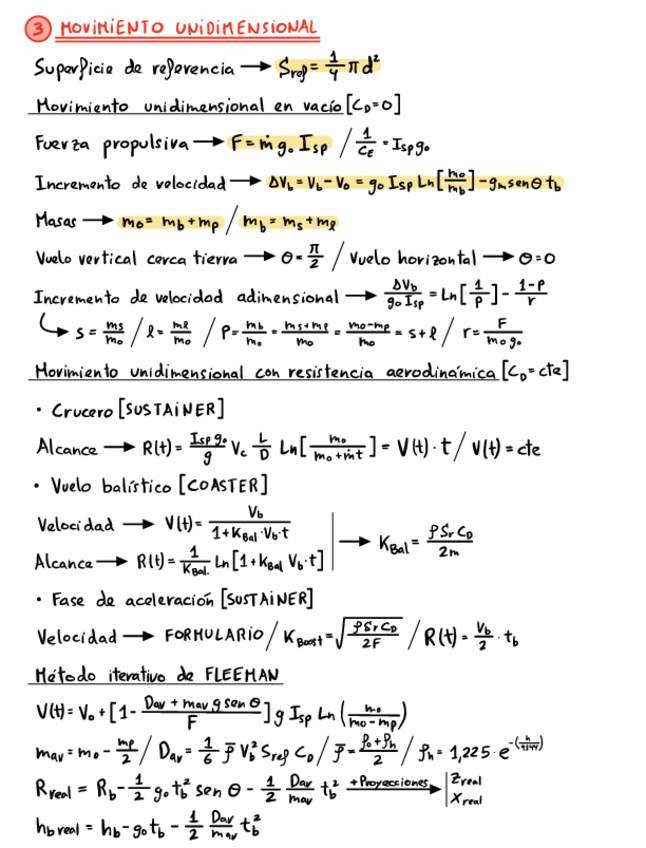 ③ MOVIMIENTO UNIDIMENSIONAL
Superficie de referencia → Sref = 1/4 π d²
Movimiento unidimensional en vacío [C_D=0]
Fuerza propulsiva → F = ṁ g₀ Isp / 1/C_E = Isp g₀
Incremento de velocidad → ΔV_b = V_b - V₀ = g₀ Isp Ln[m₀/m_b] - g_n sen θ t_b
Masas → m₀ = m_b + m_p / m_b = m_s + m_l
Vuelo vertical cerca tierra → θ = π/2 / Vuelo horizontal → θ = 0
Incremento de velocidad adimensional → ΔV_b/(g₀ Isp) = Ln[1/P] - (1-P)/r
↳ s = m_s/m₀ / l = m_l/m₀ / P = m_b/m₀ = (m_s+m_l)/m₀ = (m₀-m_p)/m₀ = s+l / r = F/(m₀ g₀)
Movimiento unidimensional con resistencia aerodinámica [C_D = cte]
• Crucero [SUSTAINER]
Alcance → R(t) = (Isp g₀)/g V_c L/D Ln[m₀/(m₀+ṁt)] = V(t)·t / V(t) = cte
• Vuelo balístico [COASTER]
Velocidad → V(t) = V_b/(1+K_Bal·V_b·t)
Alcance → R(t) = 1/K_Bal. Ln[1+K_Bal V_b·t] | → K_Bal = (ρ S_r C_D)/(2m)
• Fase de aceleración [SUSTAINER]
Velocidad → FORMULARIO / K_Boost = √((ρ S_r C_D)/(2F)) / R(t) = V_b/2 · t_b
Método iterativo de FLEEMAN
V(t) = V₀ + [1 - (Dav + mav g sen θ)/F] g Isp Ln(m₀/(m₀-m_p))
mav = m₀ - m_p/2 / Dav = 1/6 ρ̄ V_b² Sref C_D / ρ̄ = (ρ₀+ρ_h)/2 / ρ_h = 1,225·e^-(h/9144)
Rreal = R_b - 1/2 g₀ t_b² sen θ - 1/2 Dav/mav t_b² +Proyecciones→ | Zreal Xreal
h_b real = h_b - g₀ t_b - 1/2 Dav/mav t_b²